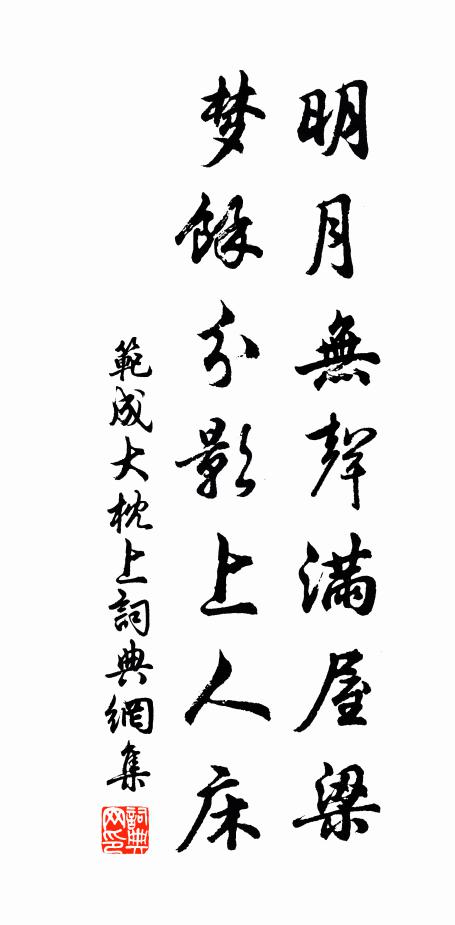 明月無聲滿屋梁
梦餘分影上人床
範成大枕上詞典網集
詞典网印